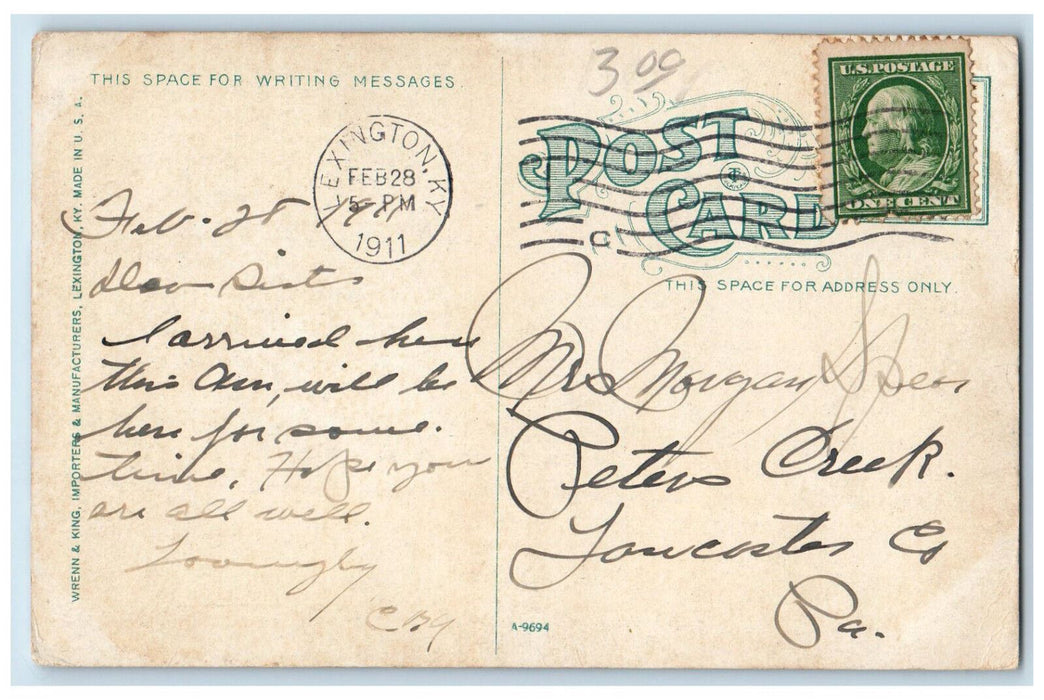 THIS SPACE FOR WRITING MESSAGES.
WRENN & KING, IMPORTERS & MANUFACTURERS, LEXINGTON, KY. MADE IN U. S. A.
LEXINGTON, KY.
FEB 28
5 - PM
1911
Feb. 28 1911
Dear Sister
I arrived here
this am, will be
here for some.
time, Hope you
are all well.
Lovingly
3 09
POST CARD
U.S. POSTAGE
ONE CENT
C
THIS SPACE FOR ADDRESS ONLY.
Mrs Morgan
Peters Creek.
Lancaster Co
Pa.
A-9694